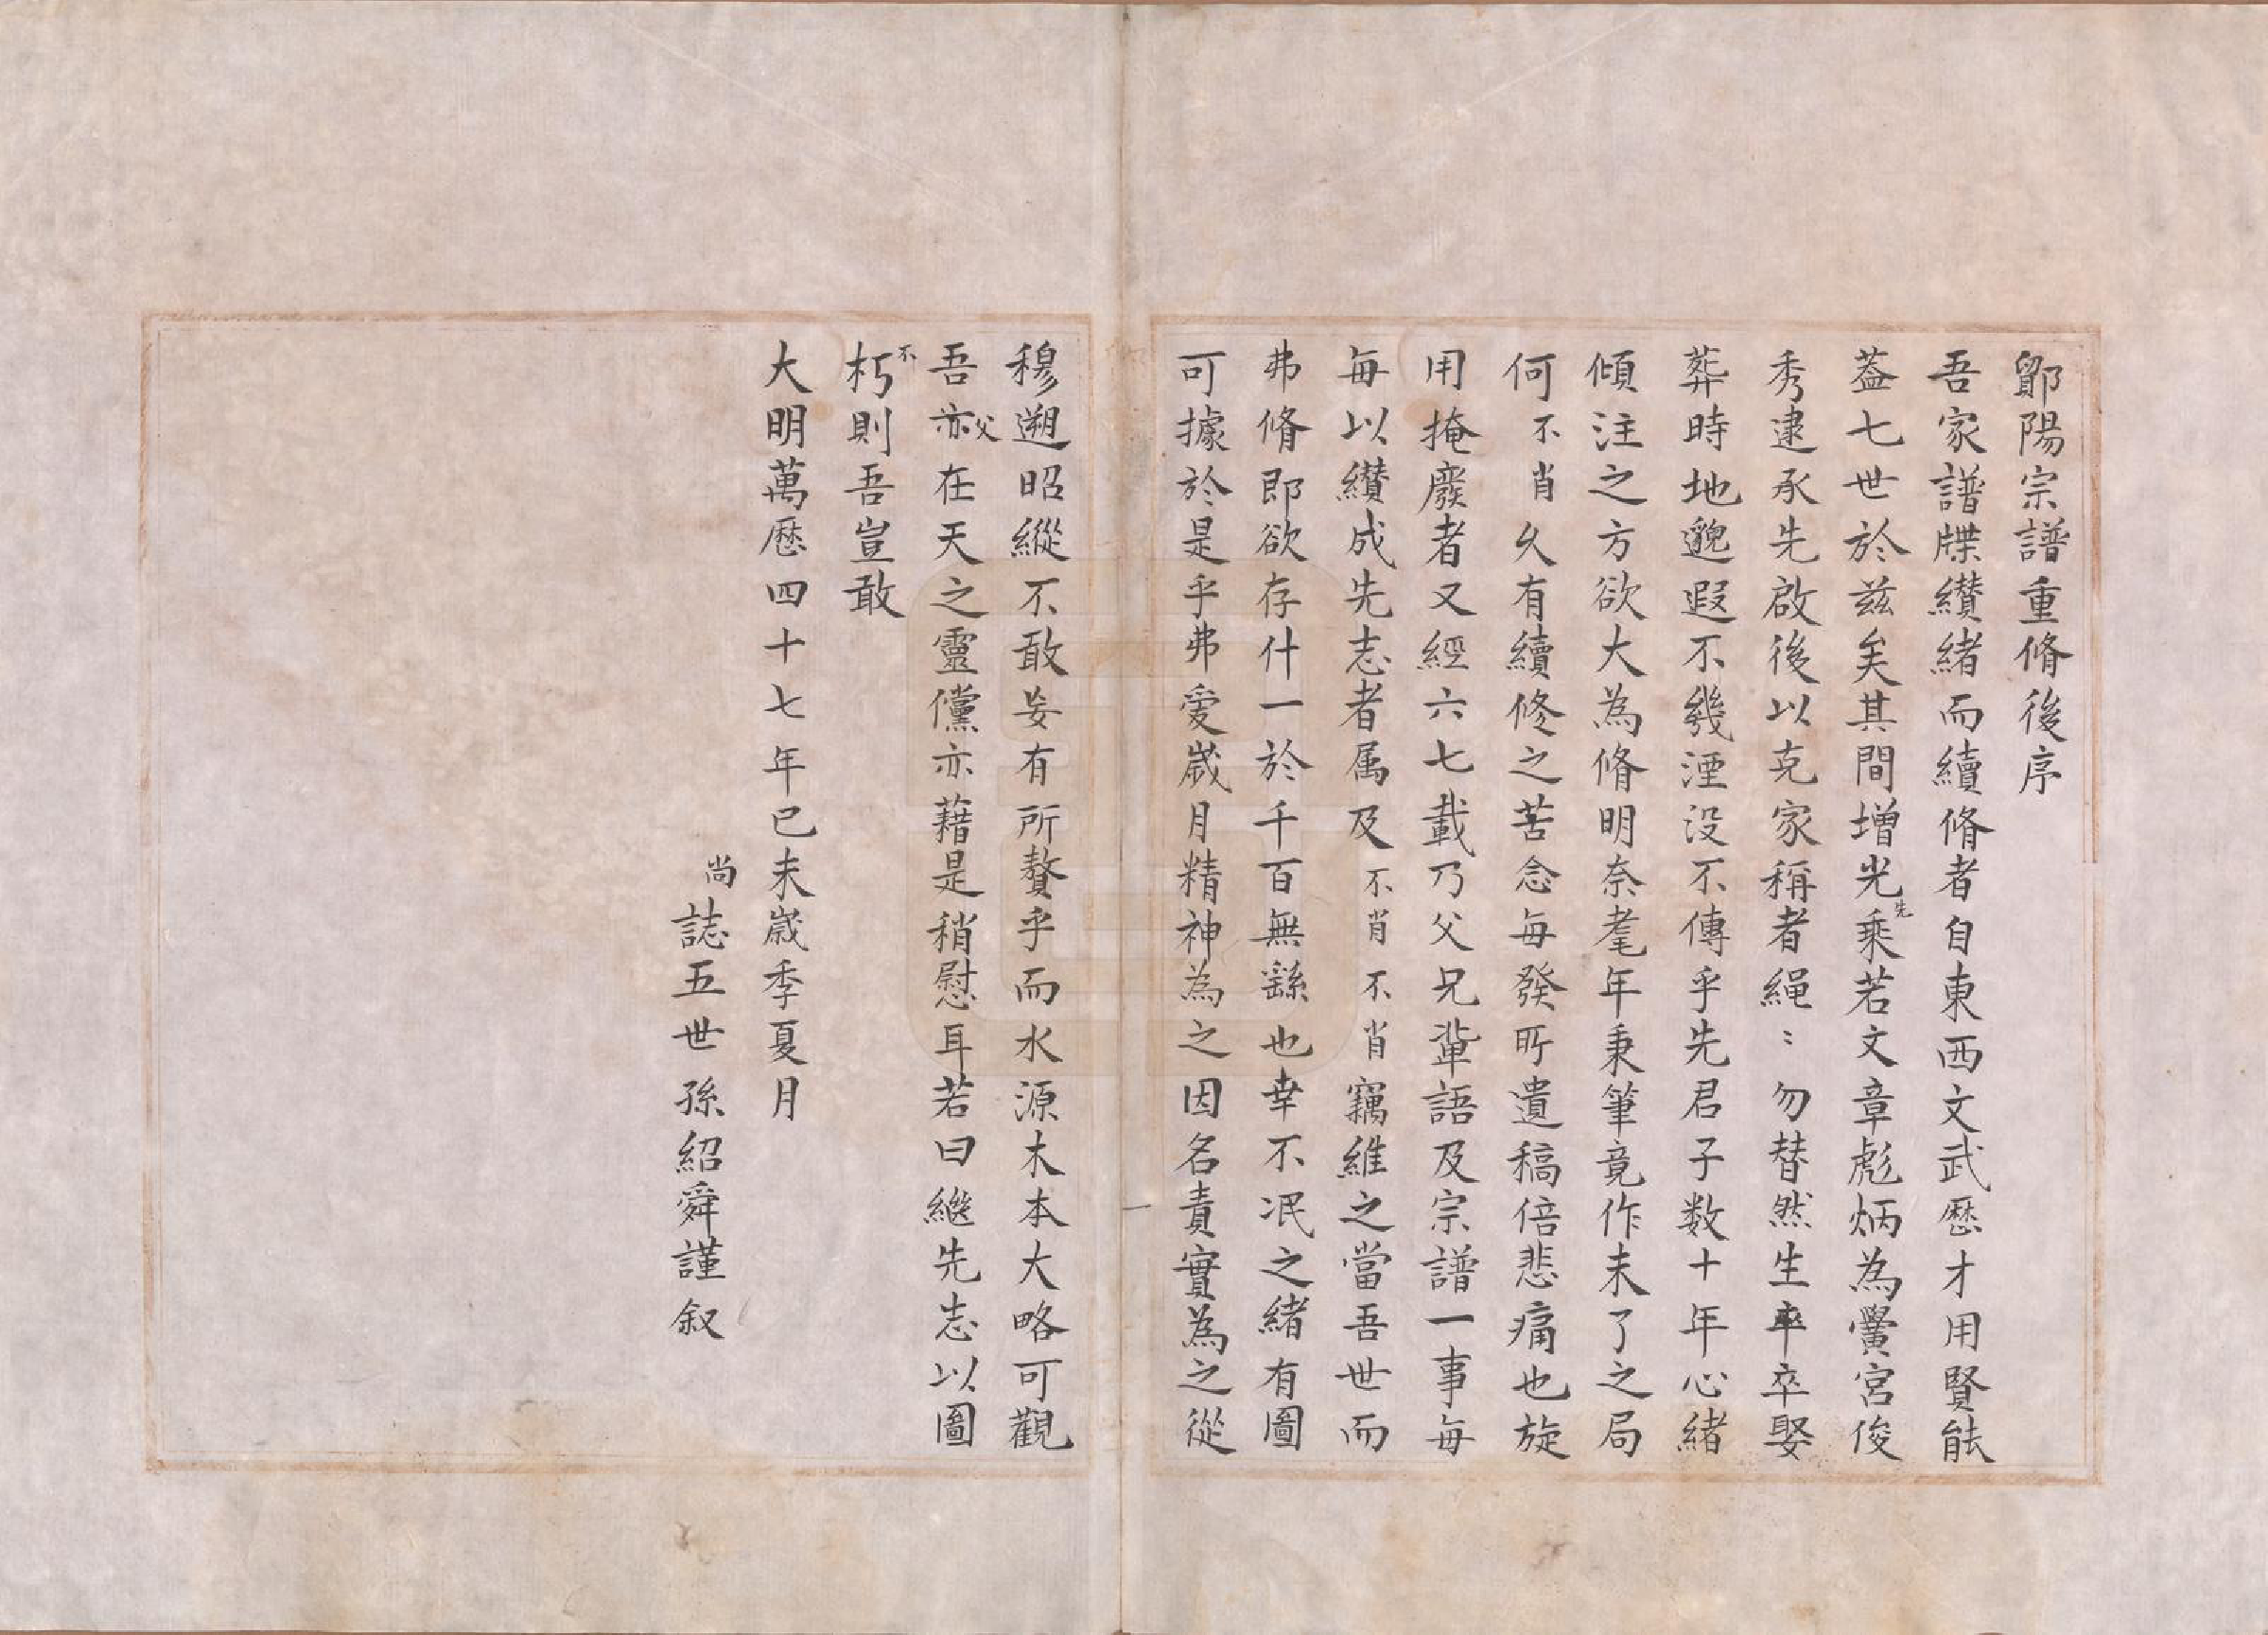 鄖陽宗譜重脩後序
吾家譜牒纘緒而續脩者自東西文武歷才用賢能
葢七世於兹矣其間增光先乘若文章彪炳為黌宮俊
秀逮承先啟後以克家稱者繩〻勿替然生卒娶
葬時地邈遐不幾湮没不傳乎先君子数十年心緒
傾注之方欲大為脩明奈耄年秉筆竟作未了之局
何不肖久有續修之苦念每發所遺稿倍悲痛也旋
用掩廢者又經六七載乃父兄輩語及宗譜一事每
每以纘成先志者属及不肖不肖竊維之當吾世而
弗脩即欲存什一於千百無繇也幸不泯之緒有圖
可據於是乎弗愛歲月精神為之因名責實為之從
穆遡昭縱不敢妄有所贅乎而水源木本大略可觀
吾父亦在天之靈儻亦藉是稍慰耳若曰繼先志以圖
不朽則吾豈敢
大明萬歷四十七年已未歲季夏月
尚誌五世孫紹舜謹叙
一